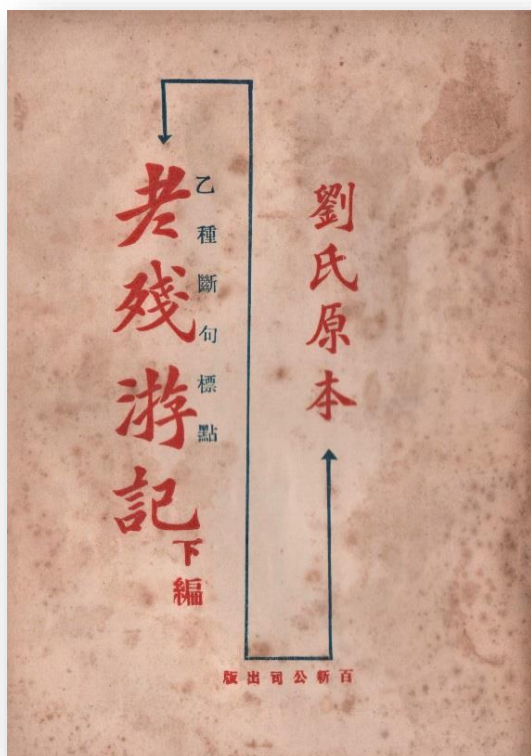 劉氏原本
乙種斷句標點
老殘游記
下編
百新公司出版